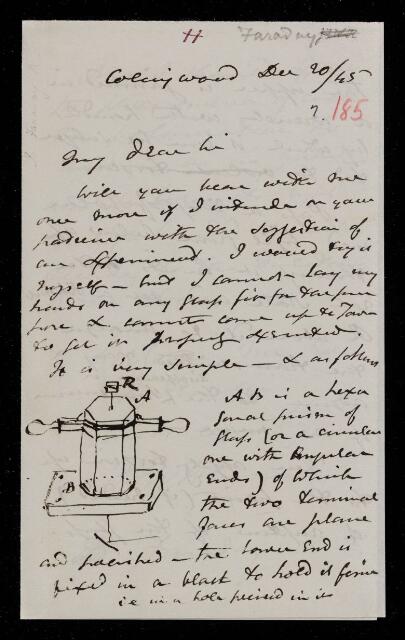 H Faraday
Collingwood Dec 20/45
?. 185
My Dear Sir
Will you bear with me
once more if I intrude on your
patience with the suggestion of
an experiment. I would try it
myself – but I cannot lay my
hands on any glass fit for the pur
pose & cannot come up to Town
to get it properly executed.
It is very simple – & as follows
R
A
B
AB is a hexa
gonal prism of
glass (or a circular
one with
ends) of which
the two terminal
faces are plane
and polished – the lower end is
fixed in a block to hold it firm
i.e. in a hole pierced in it